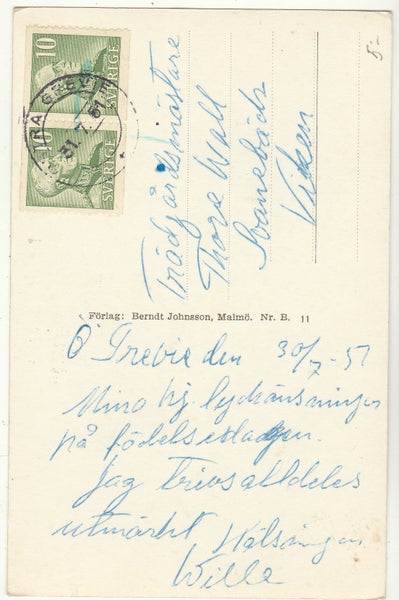 10
SVERIGE
10
SVERIGE
31. 7. 51
5:-
Trädgårdsmästare
Thore Wall
Svanebäck
Viken
Förlag: Berndt Johnsson, Malmö. Nr. B. 11
Ö Grevie den 30/7-51
Mina hj. lyckönskningar
på födelsedagen.
Jag trivs alldeles
utmärkt Hälsningar
Wille